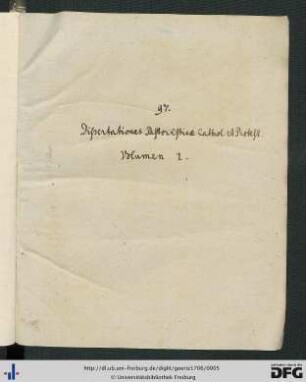 97.
Dissertationes Cathol et Protest.
Volumen 2.
http://dl.ub.uni-freiburg.de/diglit/goeriz1706/0005
© Universitätsbibliothek Freiburg
DFG